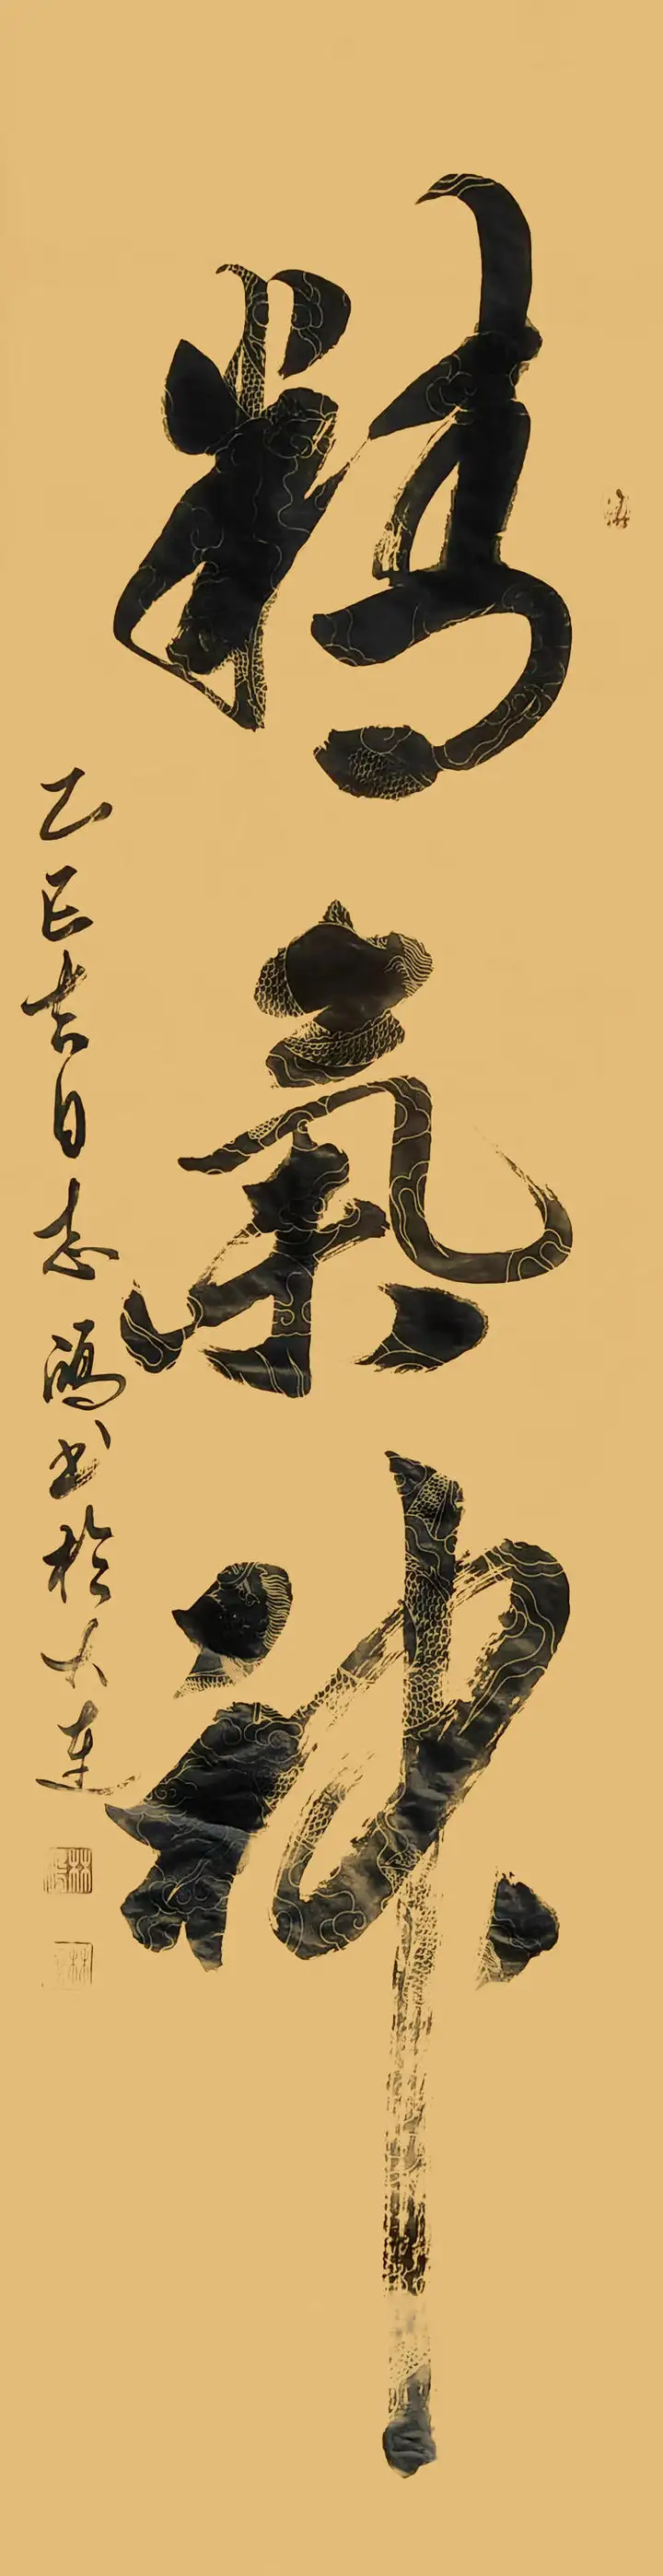 精氣神
乙巳吉日志鴻书於大连